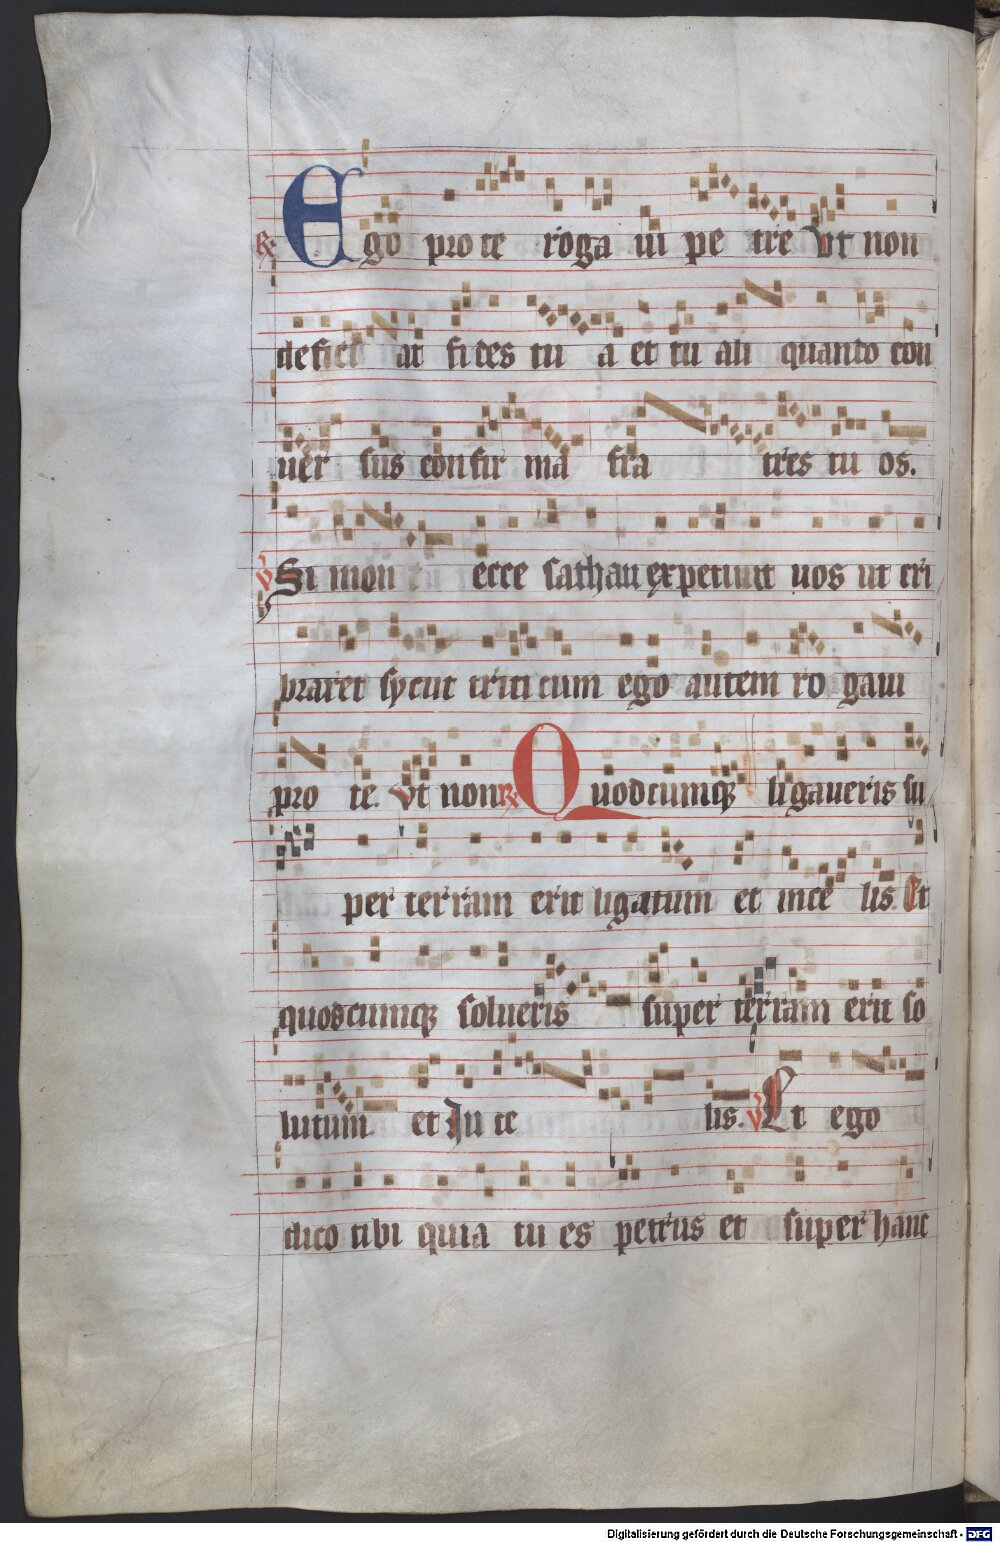 ℟ Ego pro te roga ui pe tre Vt non
deficiat fi des tu a et tu ali quando con
uer sus confir ma fra tres tu os.
℣ Si mon ecce sathan expetiuit uos ut cri
braret sycut triti cum ego autem ro gaui
pro te. Vt non ℟ Quodcumqꝫ ligaueris su
per terram erit ligatum et in ce lis. Et
quodcumqꝫ solueris super terram erit so
lutum. et In ce lis. ℣ Et ego
dico tibi quia tu es petrus et super hanc
Digitalisierung gefördert durch die Deutsche Forschungsgemeinschaft - DFG